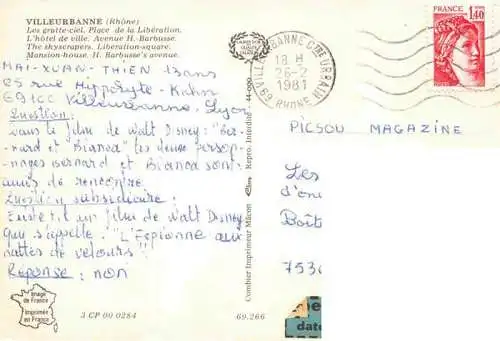 VILLEURBANNE (Rhône)
Les gratte-ciel. Place de la Libération.
L'hôtel de ville. Avenue H. Barbusse.
The skyscrapers. Liberation-square.
Mansion-house. H. Barbusse's avenue.
MAI-XUAN-THIEN 13 ans
25 rue Hippolyte-Kahn
69100 Villeurbanne-Lyon
Question:
Dans le film de Walt Disney: "Ber-
nard et Bianca" les deux person-
nages Bernard et Bianca sont
amis de rencontre
Question subsidiaire:
Existe t-il un film de Walt Disney
qui s'appelle: "L'Espionne aux
pattes de velours"
Réponse: non
Image
de France
Imprimée
en France
3 CP 00 0284
69.266
44-090
Repro. Interdite
Combier Imprimeur Mâcon
69 VILLEURBANNE
18 H
26-2
1981
RHONE
FRANCE
1,40
PICSOU MAGAZINE
Les
d'en
Boît
7536
date